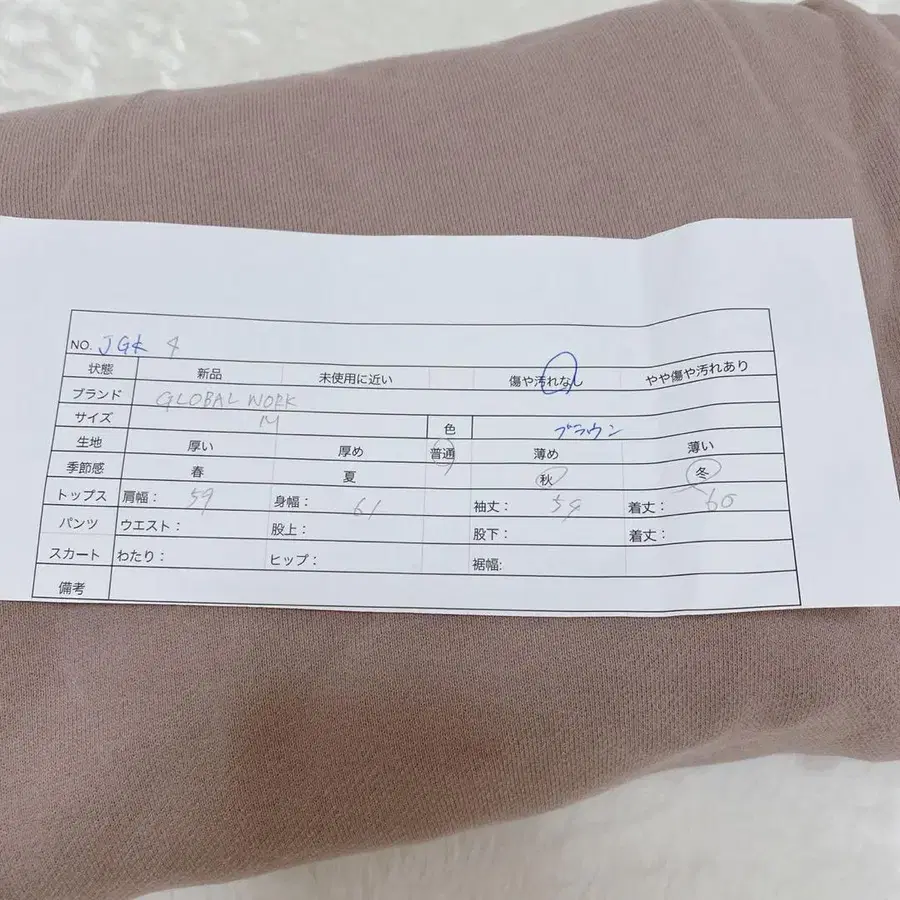 NO. JGK 4
状態 新品 未使用に近い 傷や汚れなし やや傷や汚れあり
ブランド GLOBAL WORK
サイズ M 色 ブラウン
生地 厚い 厚め 普通 薄め 薄い
季節感 春 夏 秋 冬
トップス 肩幅: 59 身幅: 61 袖丈: 59 着丈: 60
パンツ ウエスト: 股上: 股下: 着丈:
スカート わたり: ヒップ: 裾幅:
備考